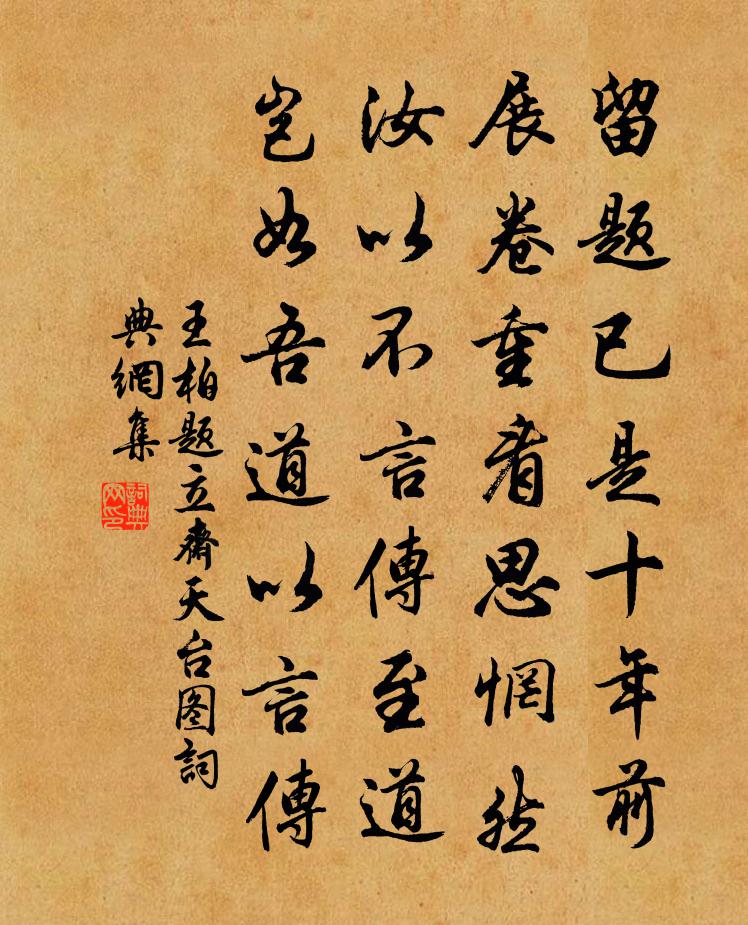 留題已是十年前
展卷重看思惘然
汝以不言傳至道
豈如吾道以言傳
王柏題立齋天台图詞
典網集
詞典
网印